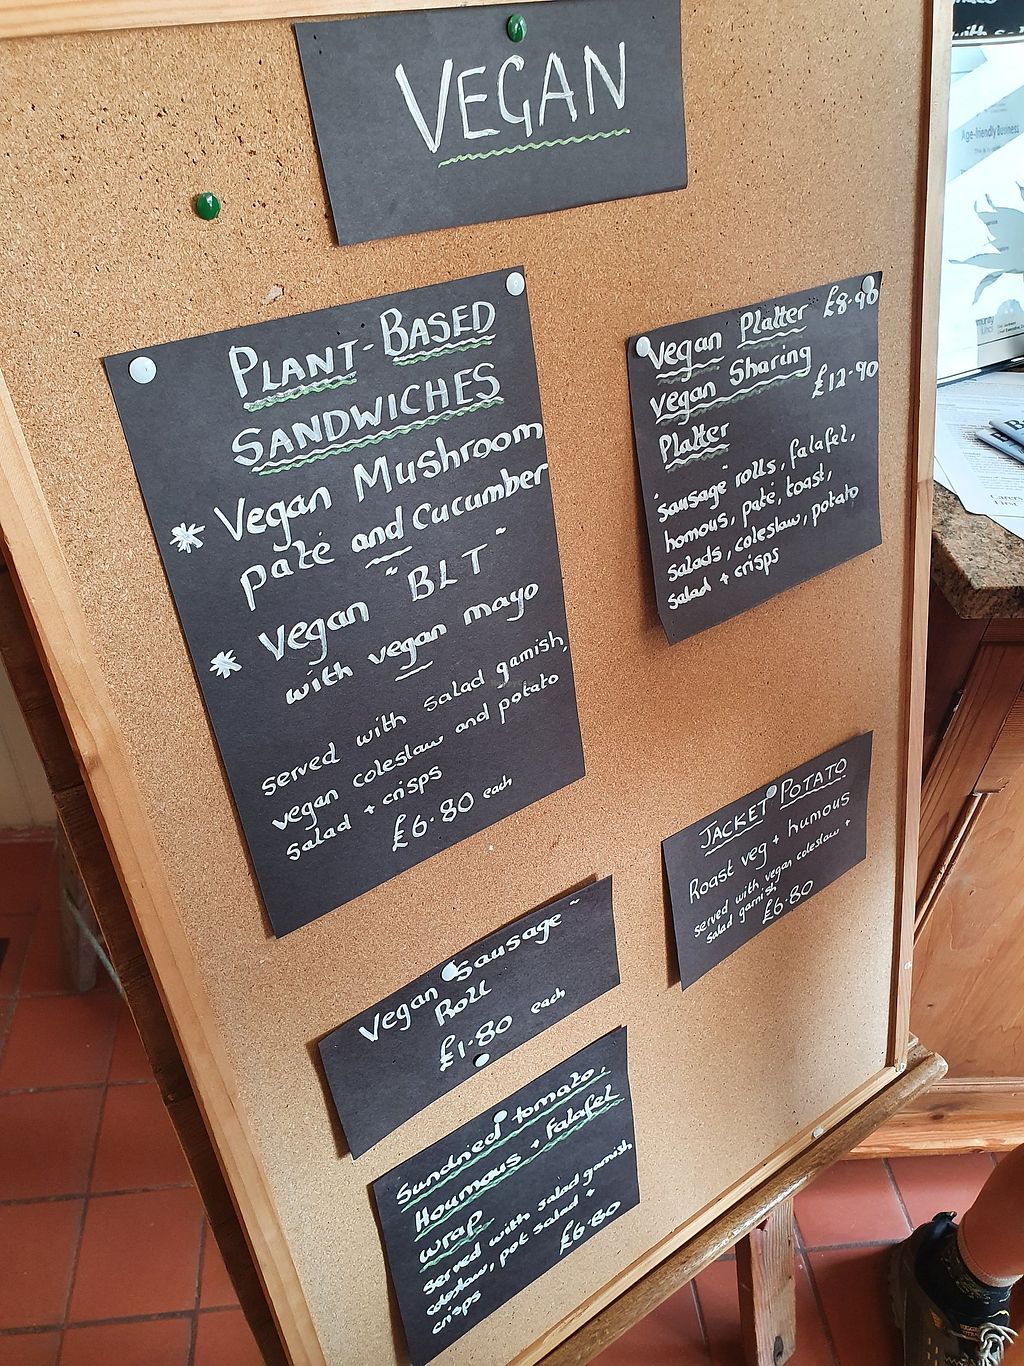 VEGAN
PLANT-BASED
SANDWICHES
* Vegan Mushroom
paté and cucumber
* Vegan "BLT"
with vegan mayo
served with salad garnish,
vegan coleslaw and potato
salad + crisps
£6.80 each
Vegan Platter £8.90
Vegan Sharing
£12.90
Platter
"sausage" rolls, falafel,
homous, paté, toast,
salads, coleslaw, potato
salad + crisps
JACKET POTATO
Roast veg + humous
served with vegan coleslaw +
salad garnish
£6.80
Vegan Sausage
Roll
£1.80 each
Sundried tomato,
Houmous + Falafel
wrap
served with salad garnish
coleslaw, pot salad +
crisps £6.80
Age-friendly Business